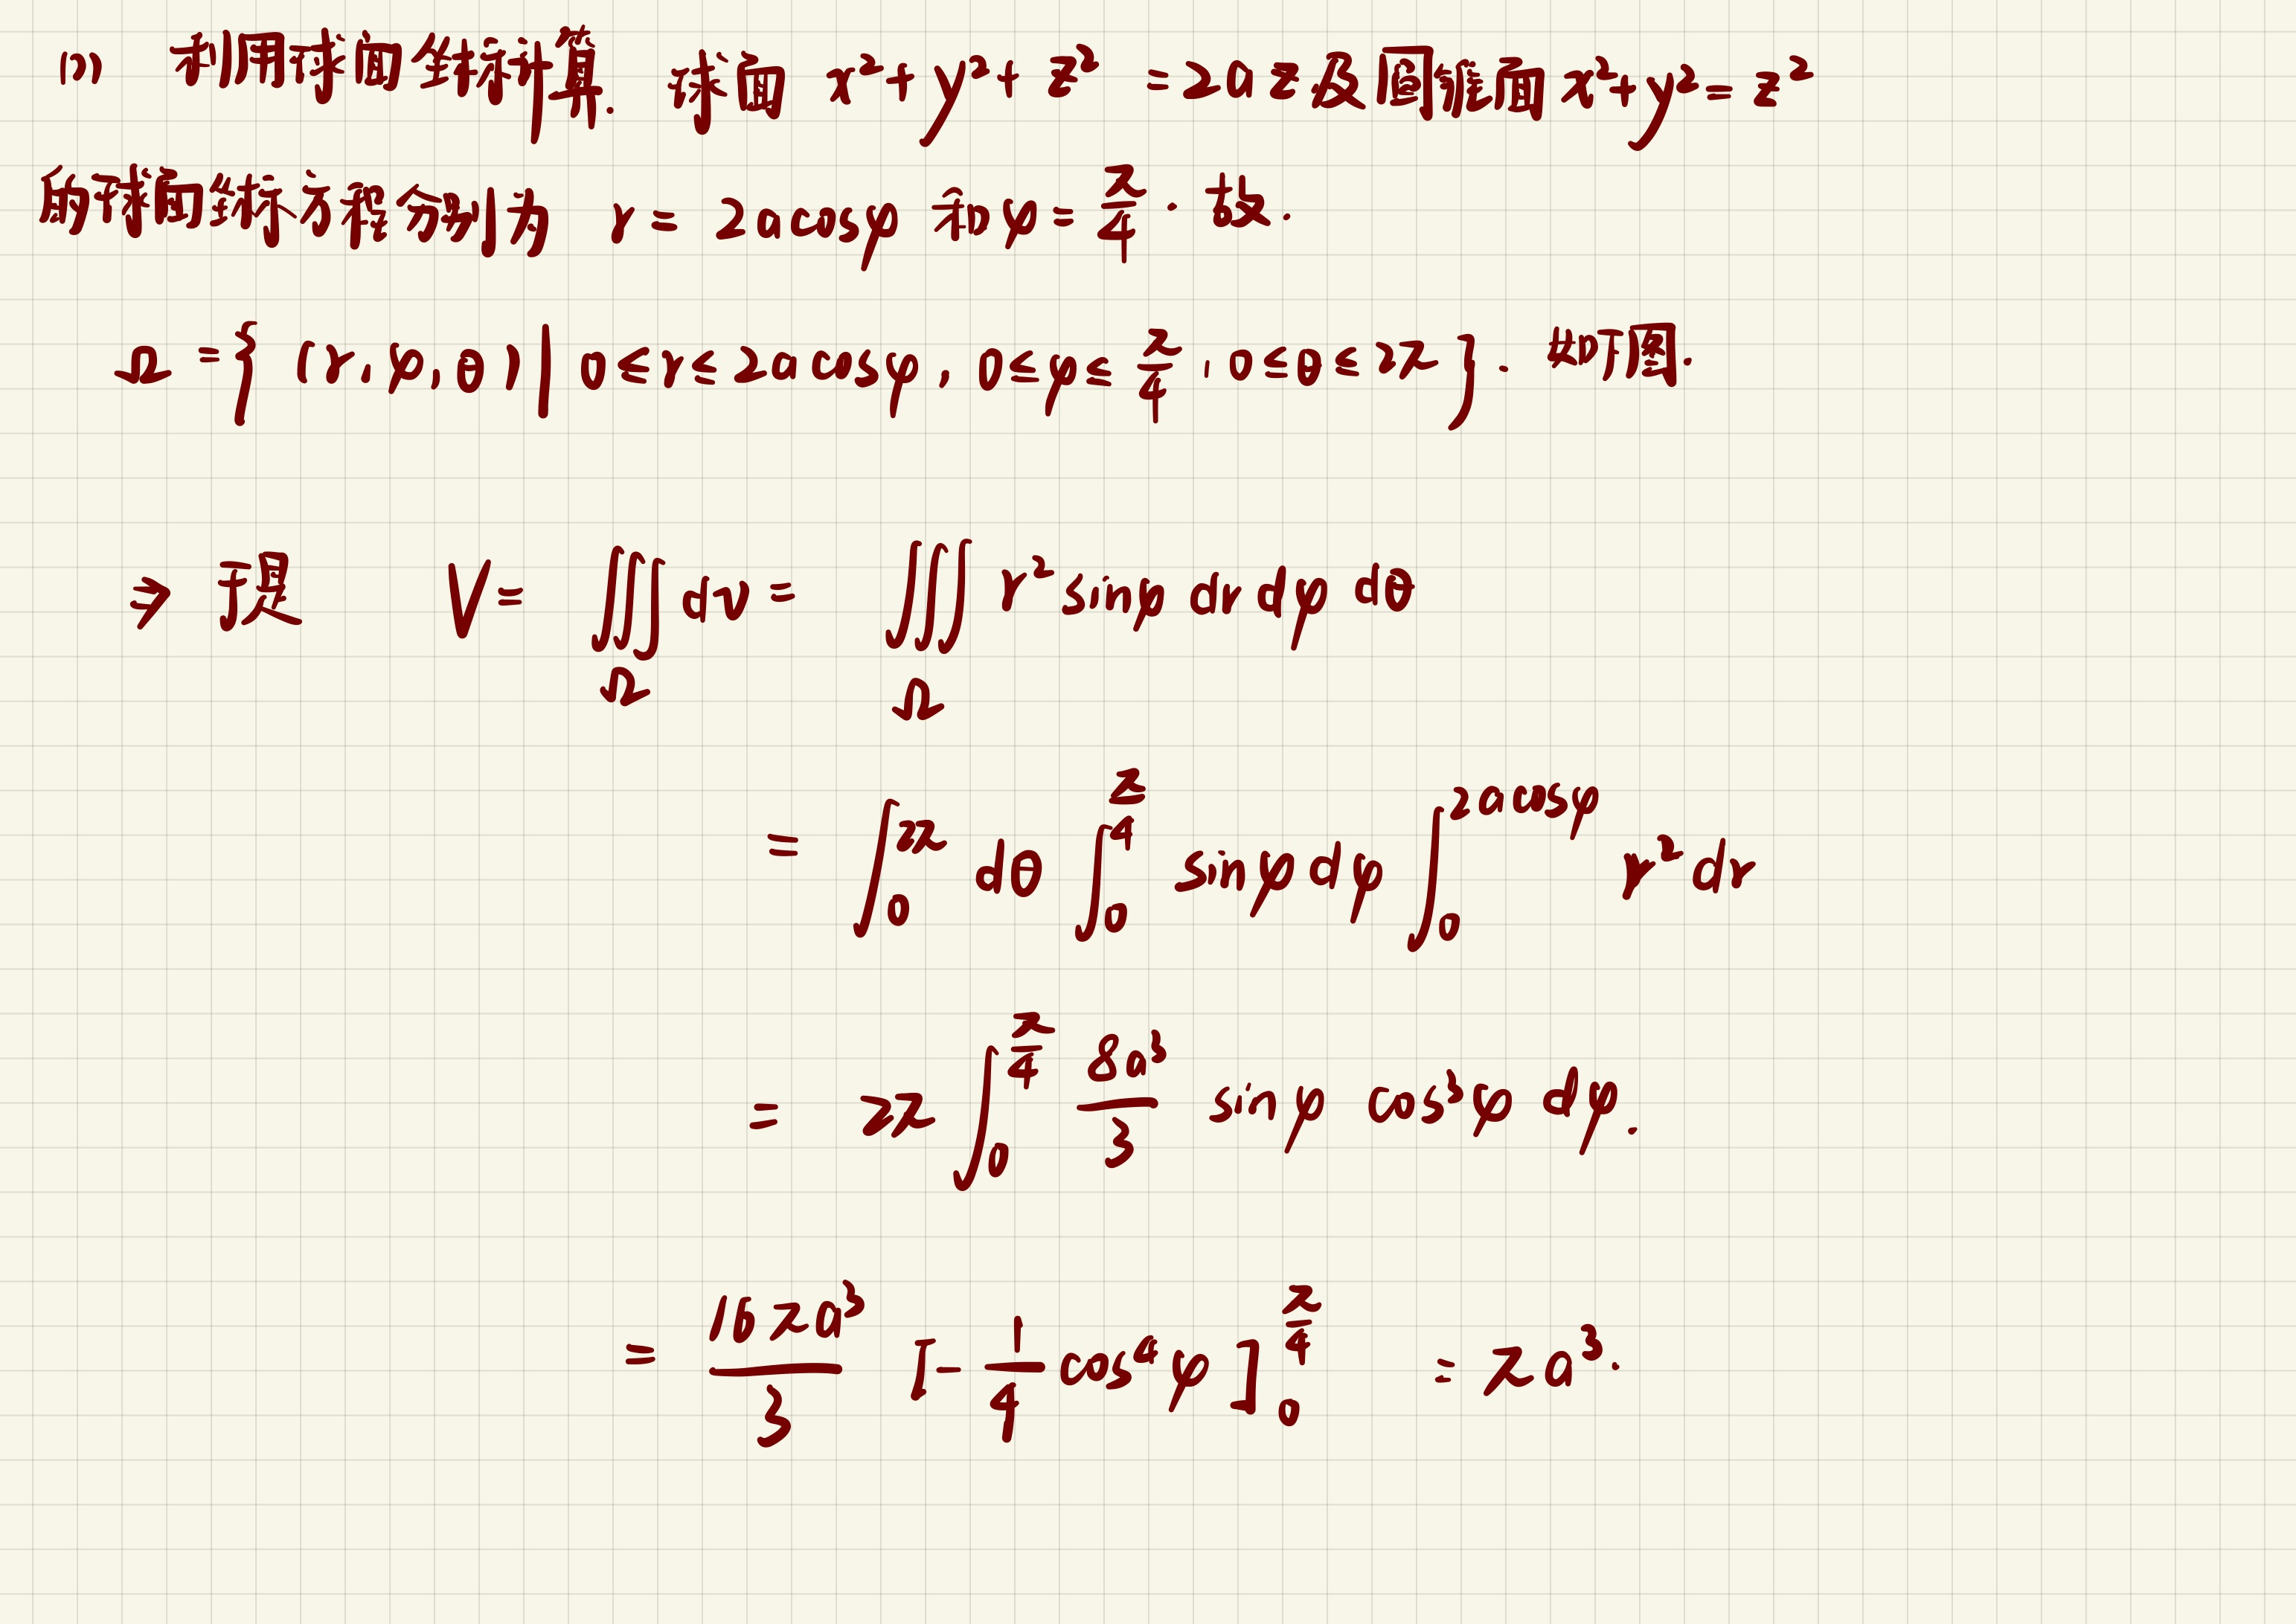 (1) 利用球面坐标计算. 球面 x²+y²+z² =2az及圆锥面x²+y²=z²
的球面坐标方程分别为 r=2acosφ 和φ=π/4. 故.
Ω={(r,φ,θ)|0≤r≤2acosφ, 0≤φ≤π/4, 0≤θ≤2π}. 如下图.
⇒ 于是 V= ∭_Ω dv= ∭_Ω r²sinφ dr dφ dθ
= ∫_0^{2π} dθ ∫_0^{π/4} sinφ dφ ∫_0^{2acosφ} r² dr
= 2π ∫_0^{π/4} 8a³/3 sinφ cos³φ dφ.
= 16πa³/3 [-1/4 cos⁴φ]_0^{π/4} = πa³.